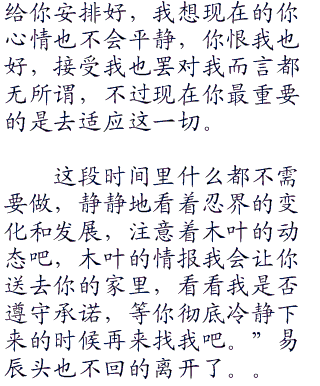 给你安排好，我想现在的你
心情也不会平静，你恨我也
好，接受我也罢对我而言都
无所谓，不过现在你最重要
的是去适应这一切。
这段时间里什么都不需
要做，静静地看着忍界的变
化和发展，注意着木叶的动
态吧，木叶的情报我会让你
送去你的家里，看看我是否
遵守承诺，等你彻底冷静下
来的时候再来找我吧。”易
辰头也不回的离开了。。